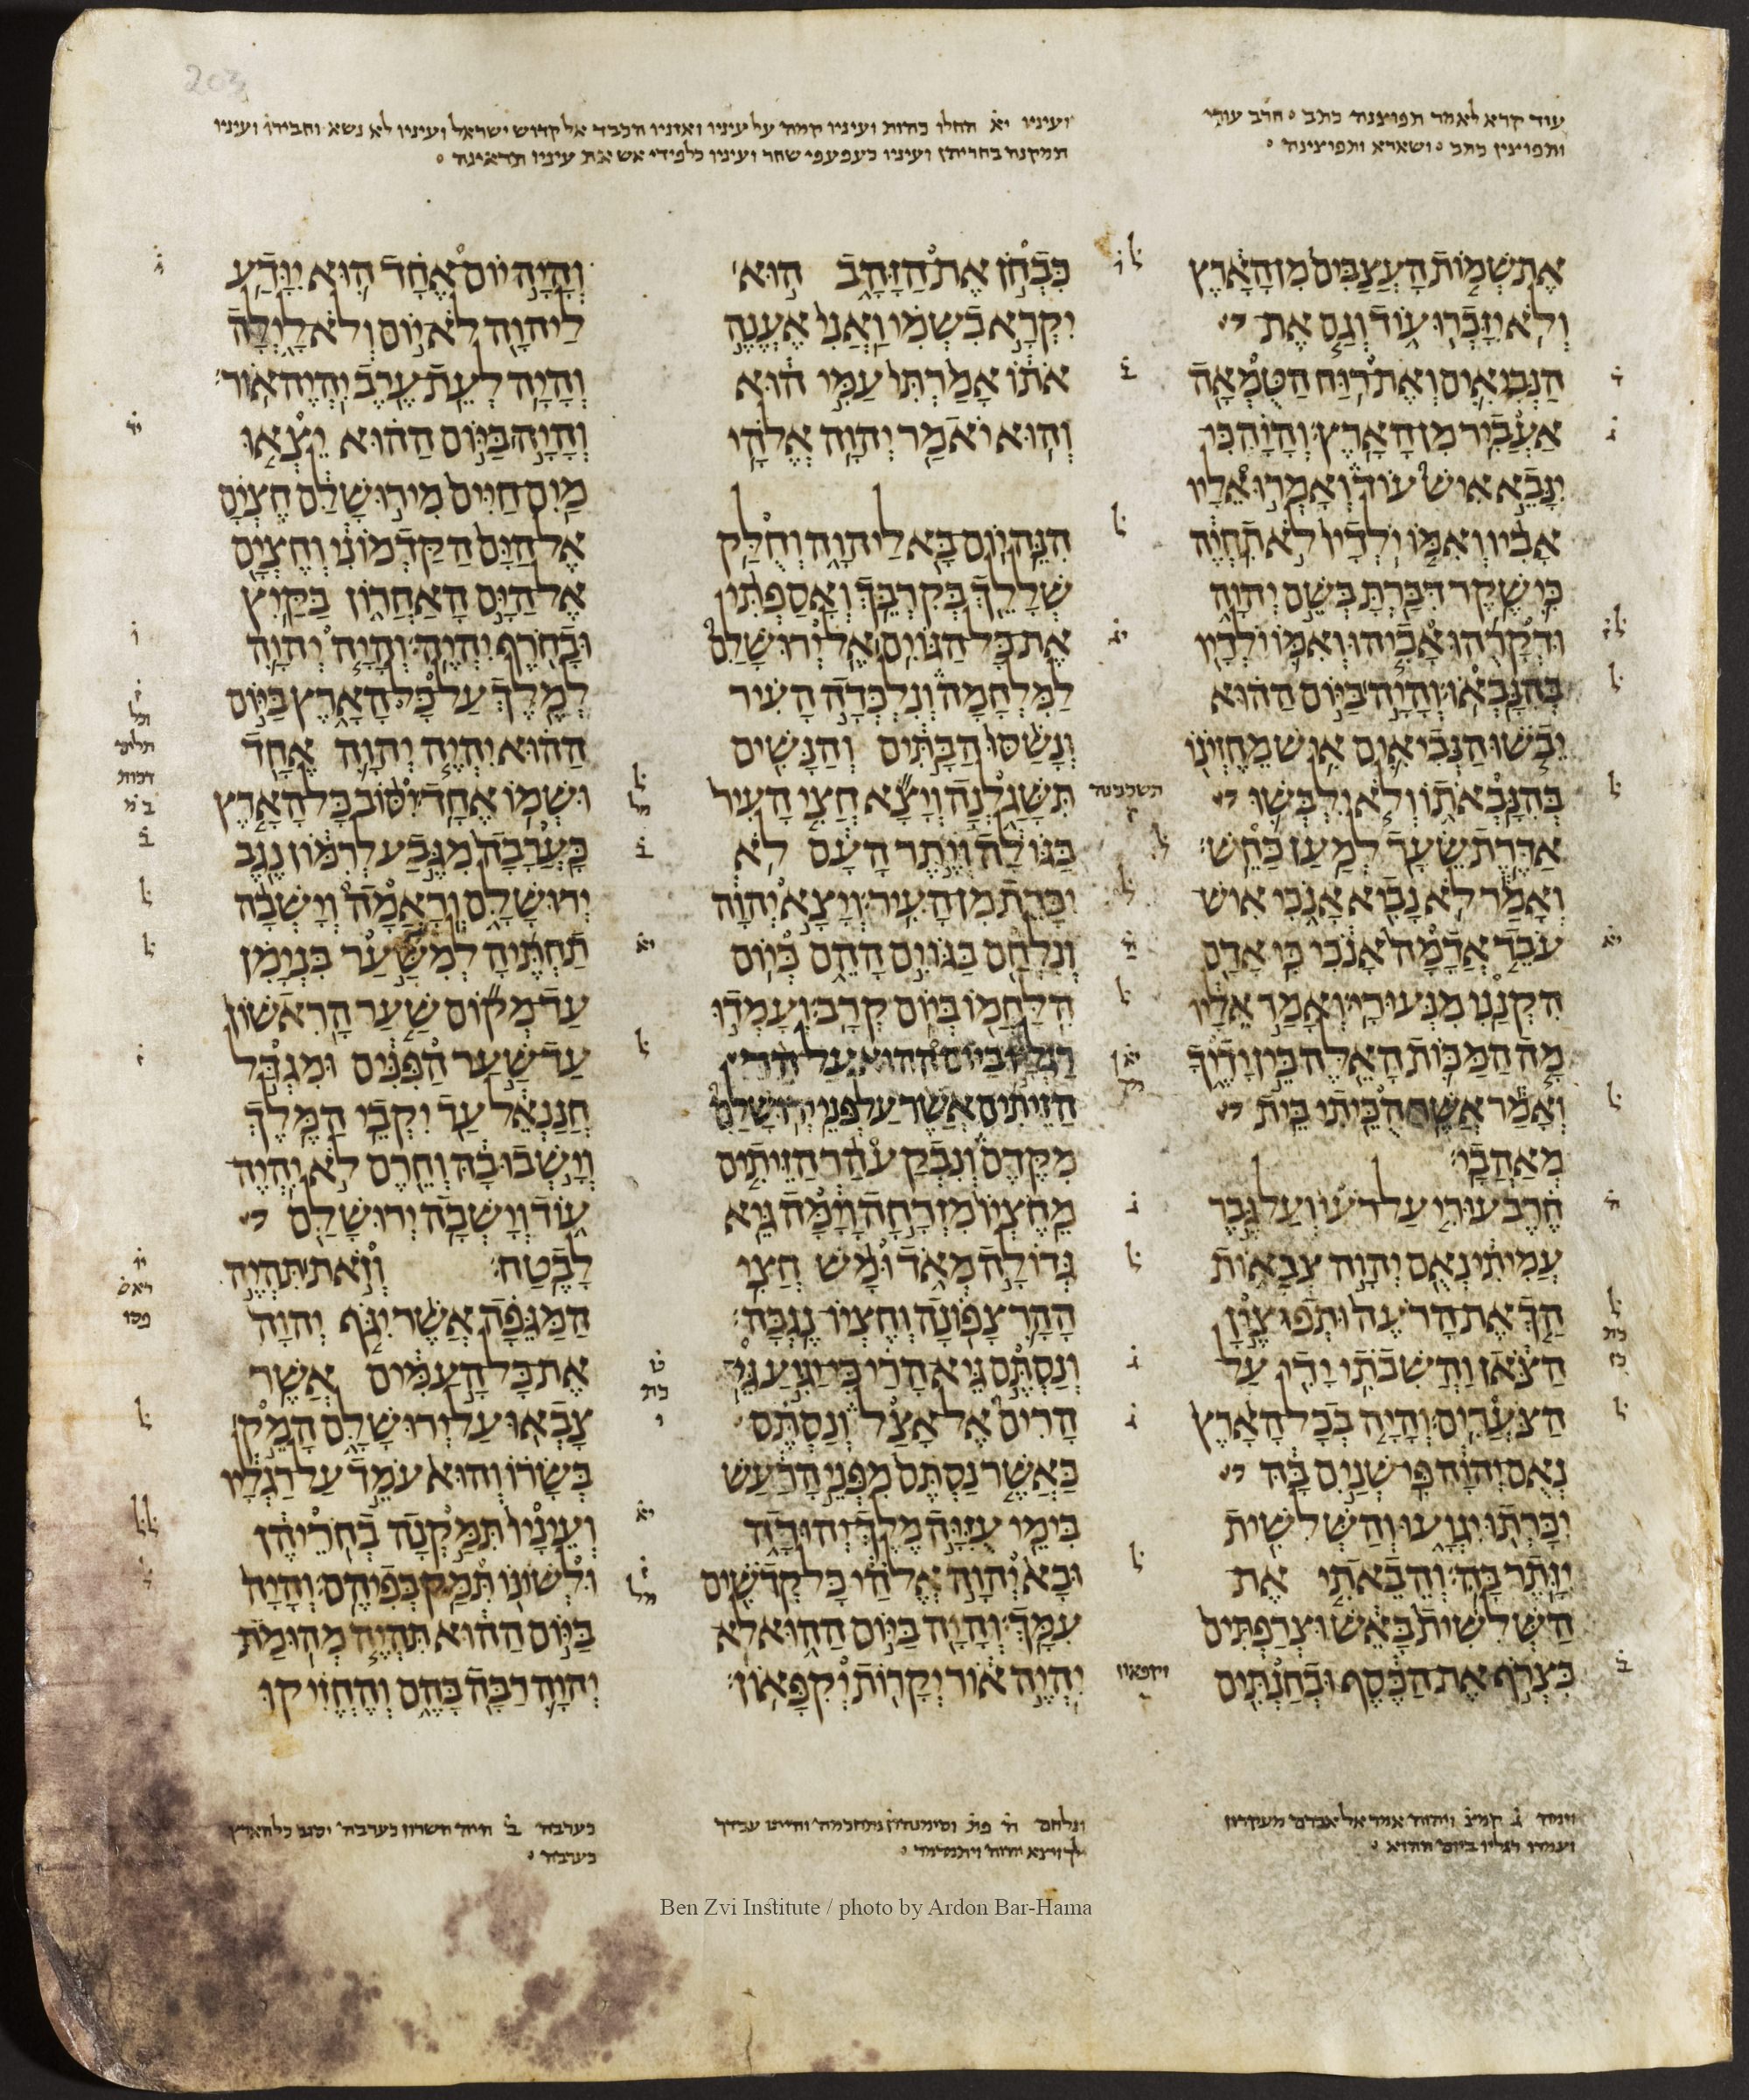 203
עוד קרא לאמר תפוצנה כתב חרב עורי
ותפוצין כתב ושארא ותפוצינה
ועיניו יא החלו כהות ועיניו קמה על עיניו ואזניו הכבד אל קדוש ישראל ועיניו לא נשא וחבירו ועיניו
תמקנה בחריהן ועיניו כעפעפי שחר ועיניו כלפידי אש את עיניו תראינה
את שמות העצבים מן הארץ
ולא יזכרו עוד וגם את
הנביאים ואת רוח הטמאה
אעביר מן הארץ והיה כי
ינבא איש עוד ואמרו אליו
אביו ואמו ילדיו לא תחיה
כי שקר דברת בשם יהוה
ודקרהו אביהו ואמו ילדיו
בהנבאו והיה ביום ההוא
יבשו הנביאים איש מחזינו
בהנבאתו ולא ילבשו
אדרת שער למען כחש
ואמר לא נביא אנכי איש
עבד אדמה אנכי כי אדם
הקנני מנעורי ואמר אליו
מה המכות האלה בין ידיך
ואמר אשר הכיתי בית
מאהבי
חרב עורי על רעי ועל גבר
עמיתי נאם יהוה צבאות
הך את הרעה ותפוצין
הצאן והשבתי ידי על
הצערים והיה בכל הארץ
נאם יהוה פי שנים בה
יכרתו יגועו והשלשית
יותר בה והבאתי את
השלשית באש וצרפתים
כצרף את הכסף ובחנתים
כבחן את הזהב הוא
יקרא בשמי ואני אענה
אתו אמרתי עמי הוא
והוא יאמר יהוה אלהי
הנה יום בא ליהוה וחלק
שללך בקרבך ואספתי
את כל הגוים אל ירושלם
למלחמה ונלכדה העיר
ונשסו הבתים והנשים
תשגלנה ויצא חצי העיר
בגולה ויתר העם לא
יכרת מן העיר ויצא יהוה
ונלחם בגוים ההם כיום
הלחמו ביום קרב ועמדו
רגליו ביום ההוא על הר
הזיתים אשר על פני ירושלם
מקדם ונבקע הר הזיתים
מחציו מזרחה וימה גיא
גדולה מאד ומש חצי
ההר צפונה וחציו נגבה
ונסתם גיא הרי כי יגיע גי
הרים אל אצל ונסתם
כאשר נסתם מפני הרעש
בימי עזיה מלך יהודה
ובא יהוה אלהי כל קדשים
עמך והיה ביום ההוא לא
יהיה אור יקרות יקפאון
והיה יום אחד הוא יודע
ליהוה לא יום ולא לילה
והיה לעת ערב יהיה אור
והיה ביום ההוא יצאו
מים חיים מירושלם חצים
אל הים הקדמוני וחצים
אל הים האחרון בקיץ
ובחרף יהיה והיה יהוה
למלך על כל הארץ ביום
ההוא יהיה יהוה אחד
ושמו אחד יסוב כל הארץ
כערבה מגבע לרמון נגב
ירושלם וראמה וישבה
תחתיה למשער בנימן
עד מקום שער הראשון
עד שער הפנים ומגדל
חננאל עד יקבי המלך
וישבו בה וחרם לא יהיה
עוד וישבה ירושלם
לבטח וזאת תהיה
המגפה אשר יגף יהוה
את כל העמים אשר
צבאו על ירושלם המק
בשרו והוא עמד על רגליו
ועיניו תמקנה בחריהן
ולשונו תמק בפיהם והיה
ביום ההוא תהיה מהומת
יהוה רבה בהם והחזיקו
ועמדו רגליו ביום ההוא
כערבה
Ben Zvi Institute / photo by Ardon Bar-Hama